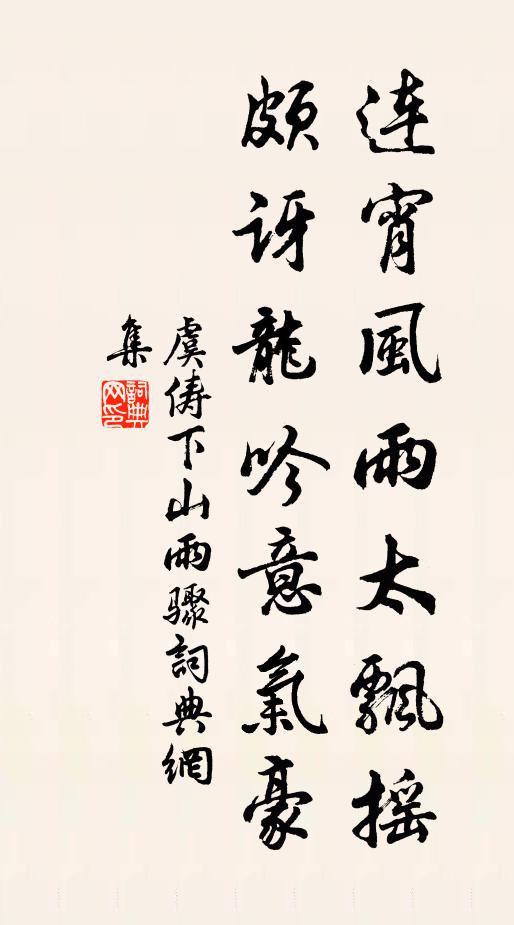 連宵風雨太飄摇
頗訝龍吟意氣豪
虞儔下山雨驟詞典網
集
詞典
网印